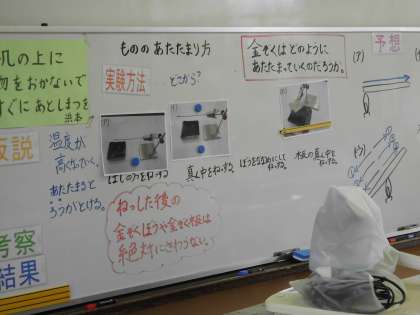 机の上に
物をおかないで
すぐにあとしまつを
ものの あたたまり方
金ぞくは どのように
あたたまっていくのだろうか。
予想
実験方法
どこから?
(ア)
仮説
温度が
高くなっていく。
あたたまると
ろうがとける。
はしの方をねっする
真ん中をねっする。
ぼうをななめにして
ねっする。
板の真ん中を
ねっする。
(ウ)
ねっした後の
金ぞくぼうや金ぞく板は
絶対にさわらない。
考察
結果